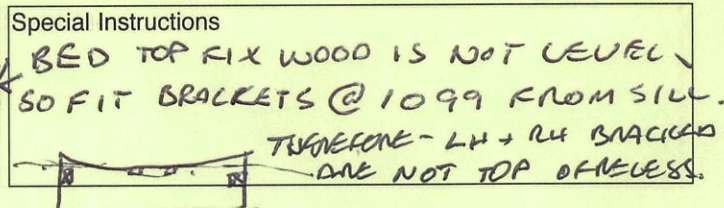 Special Instructions
BED TOP FIX WOOD IS NOT LEVEL
SO FIT BRACKETS @ 1099 FROM SILL.
THEREFORE - LH + RH BRACKED
ARE NOT TOP OF RECESS.